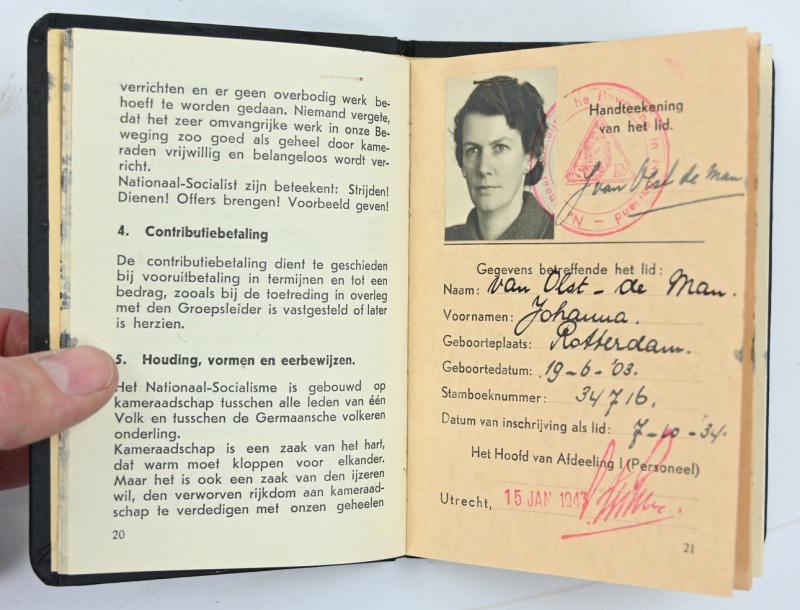 verrichten en er geen overbodig werk be-
hoeft te worden gedaan. Niemand vergete,
dat het zeer omvangrijke werk in onze Be-
weging zoo goed als geheel door kame-
raden vrijwillig en belangeloos wordt ver-
richt.
Nationaal-Socialist zijn beteekent: Strijden!
Dienen! Offers brengen! Voorbeeld geven!
4. Contributiebetaling
De contributiebetaling dient te geschieden
bij vooruitbetaling in termijnen en tot een
bedrag, zooals bij de toetreding in overleg
met den Groepsleider is vastgesteld of later
is herzien.
5. Houding, vormen en eerbewijzen.
Het Nationaal-Socialisme is gebouwd op
kameraadschap tusschen alle leden van één
Volk en tusschen de Germaansche volkeren
onderling.
Kameraadschap is een zaak van het hart,
dat warm moet kloppen voor elkander.
Maar het is ook een zaak van den ijzeren
wil, den verworven rijkdom aan kameraad-
schap te verdedigen met onzen geheelen
20
Handteekening
van het lid.
J van Olst de Man
Gegevens betreffende het lid:
Naam: van Olst - de Man.
Voornamen: Johanna.
Geboorteplaats: Rotterdam.
Geboortedatum: 19-6-'03.
Stamboeknummer: 34716.
Datum van inschrijving als lid: 7-10-'34.
Het Hoofd van Afdeeling I (Personeel)
Utrecht, 15 JAN 1943
21